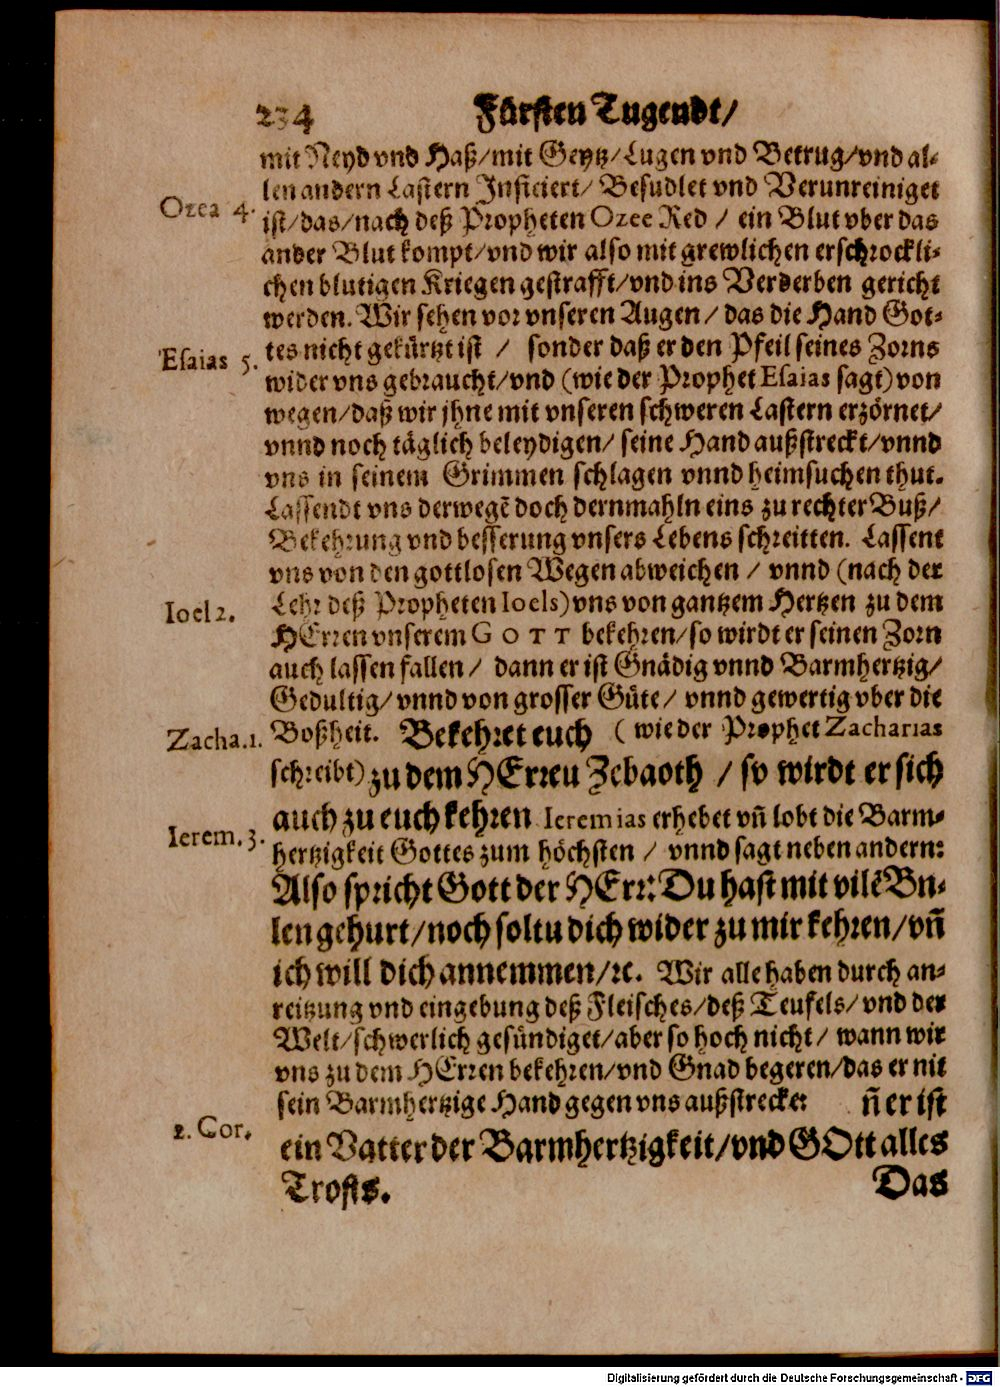 234 Fürsten Tugendt/
mit Neyd vnd Haß/mit Geytz/Lugen vnd Betrug/vnd al-
len andern Lastern Inficiert/ Besudlet vnd Verunreiniget
Ozea 4.
ist/das/nach deß Propheten Ozee Red / ein Blut vber das
ander Blut kompt/vnd wir also mit grewlichen erschrockli-
chen blutigen Kriegen gestrafft/vnd ins Verderben gericht
werden. Wir sehen vor vnseren Augen / das die Hand Got-
Esaias 5.
tes nicht gekürtzt ist / sonder daß er den Pfeil seines Zorns
wider vns gebraucht/vnd (wie der Prophet Esaias sagt) von
wegen/daß wir jhne mit vnseren schweren Lastern erzörnet/
vnnd noch täglich beleydigen/ seine Hand außstreckt/vnnd
vns in seinem Grimmen schlagen vnnd heimsuchen thut.
Lassendt vns derwegẽ doch dernmahln eins zu rechter Buß/
Bekehrung vnd besserung vnsers Lebens schreitten. Lassent
vns von den gottlosen Wegen abweichen / vnnd (nach der
Ioel 2.
Lehr deß Propheten Ioels) vns von gantzem Hertzen zu dem
HErren vnserem GOTT bekehren/so wirdt er seinen Zorn
auch lassen fallen / dann er ist Gnädig vnnd Barmhertzig/
Gedultig/vnnd von grosser Güte/ vnnd gewertig vber die
Zacha.1.
Boßheit. Bekehret euch (wie der Prophet Zacharias
schreibt) zu dem HErren Zebaoth / so wirdt er sich
auch zu euch kehren Ieremias erhebet vñ lobt die Barm-
Ierem.3.
hertzigkeit Gottes zum höchsten / vnnd sagt neben andern:
Also spricht Gott der HErr: Du hast mit vilẽ Bu-
len gehurt/noch soltu dich wider zu mir kehren/vñ
ich will dich annemmen/ꝛc. Wir alle haben durch an-
reitzung vnd eingebung deß Fleisches/deß Teufels/vnd der
Welt/schwerlich gesündiget/aber so hoch nicht/ wann wir
vns zu dem HErren bekehren/vnd Gnad begeren/das er nit
sein Barmhertzige Hand gegen vns außstrecke: ñ er ist
2. Cor.
ein Vatter der Barmhertzigkeit/vnd GOtt alles
Trosts.
Das
Digitalisierung gefördert durch die Deutsche Forschungsgemeinschaft - DFG